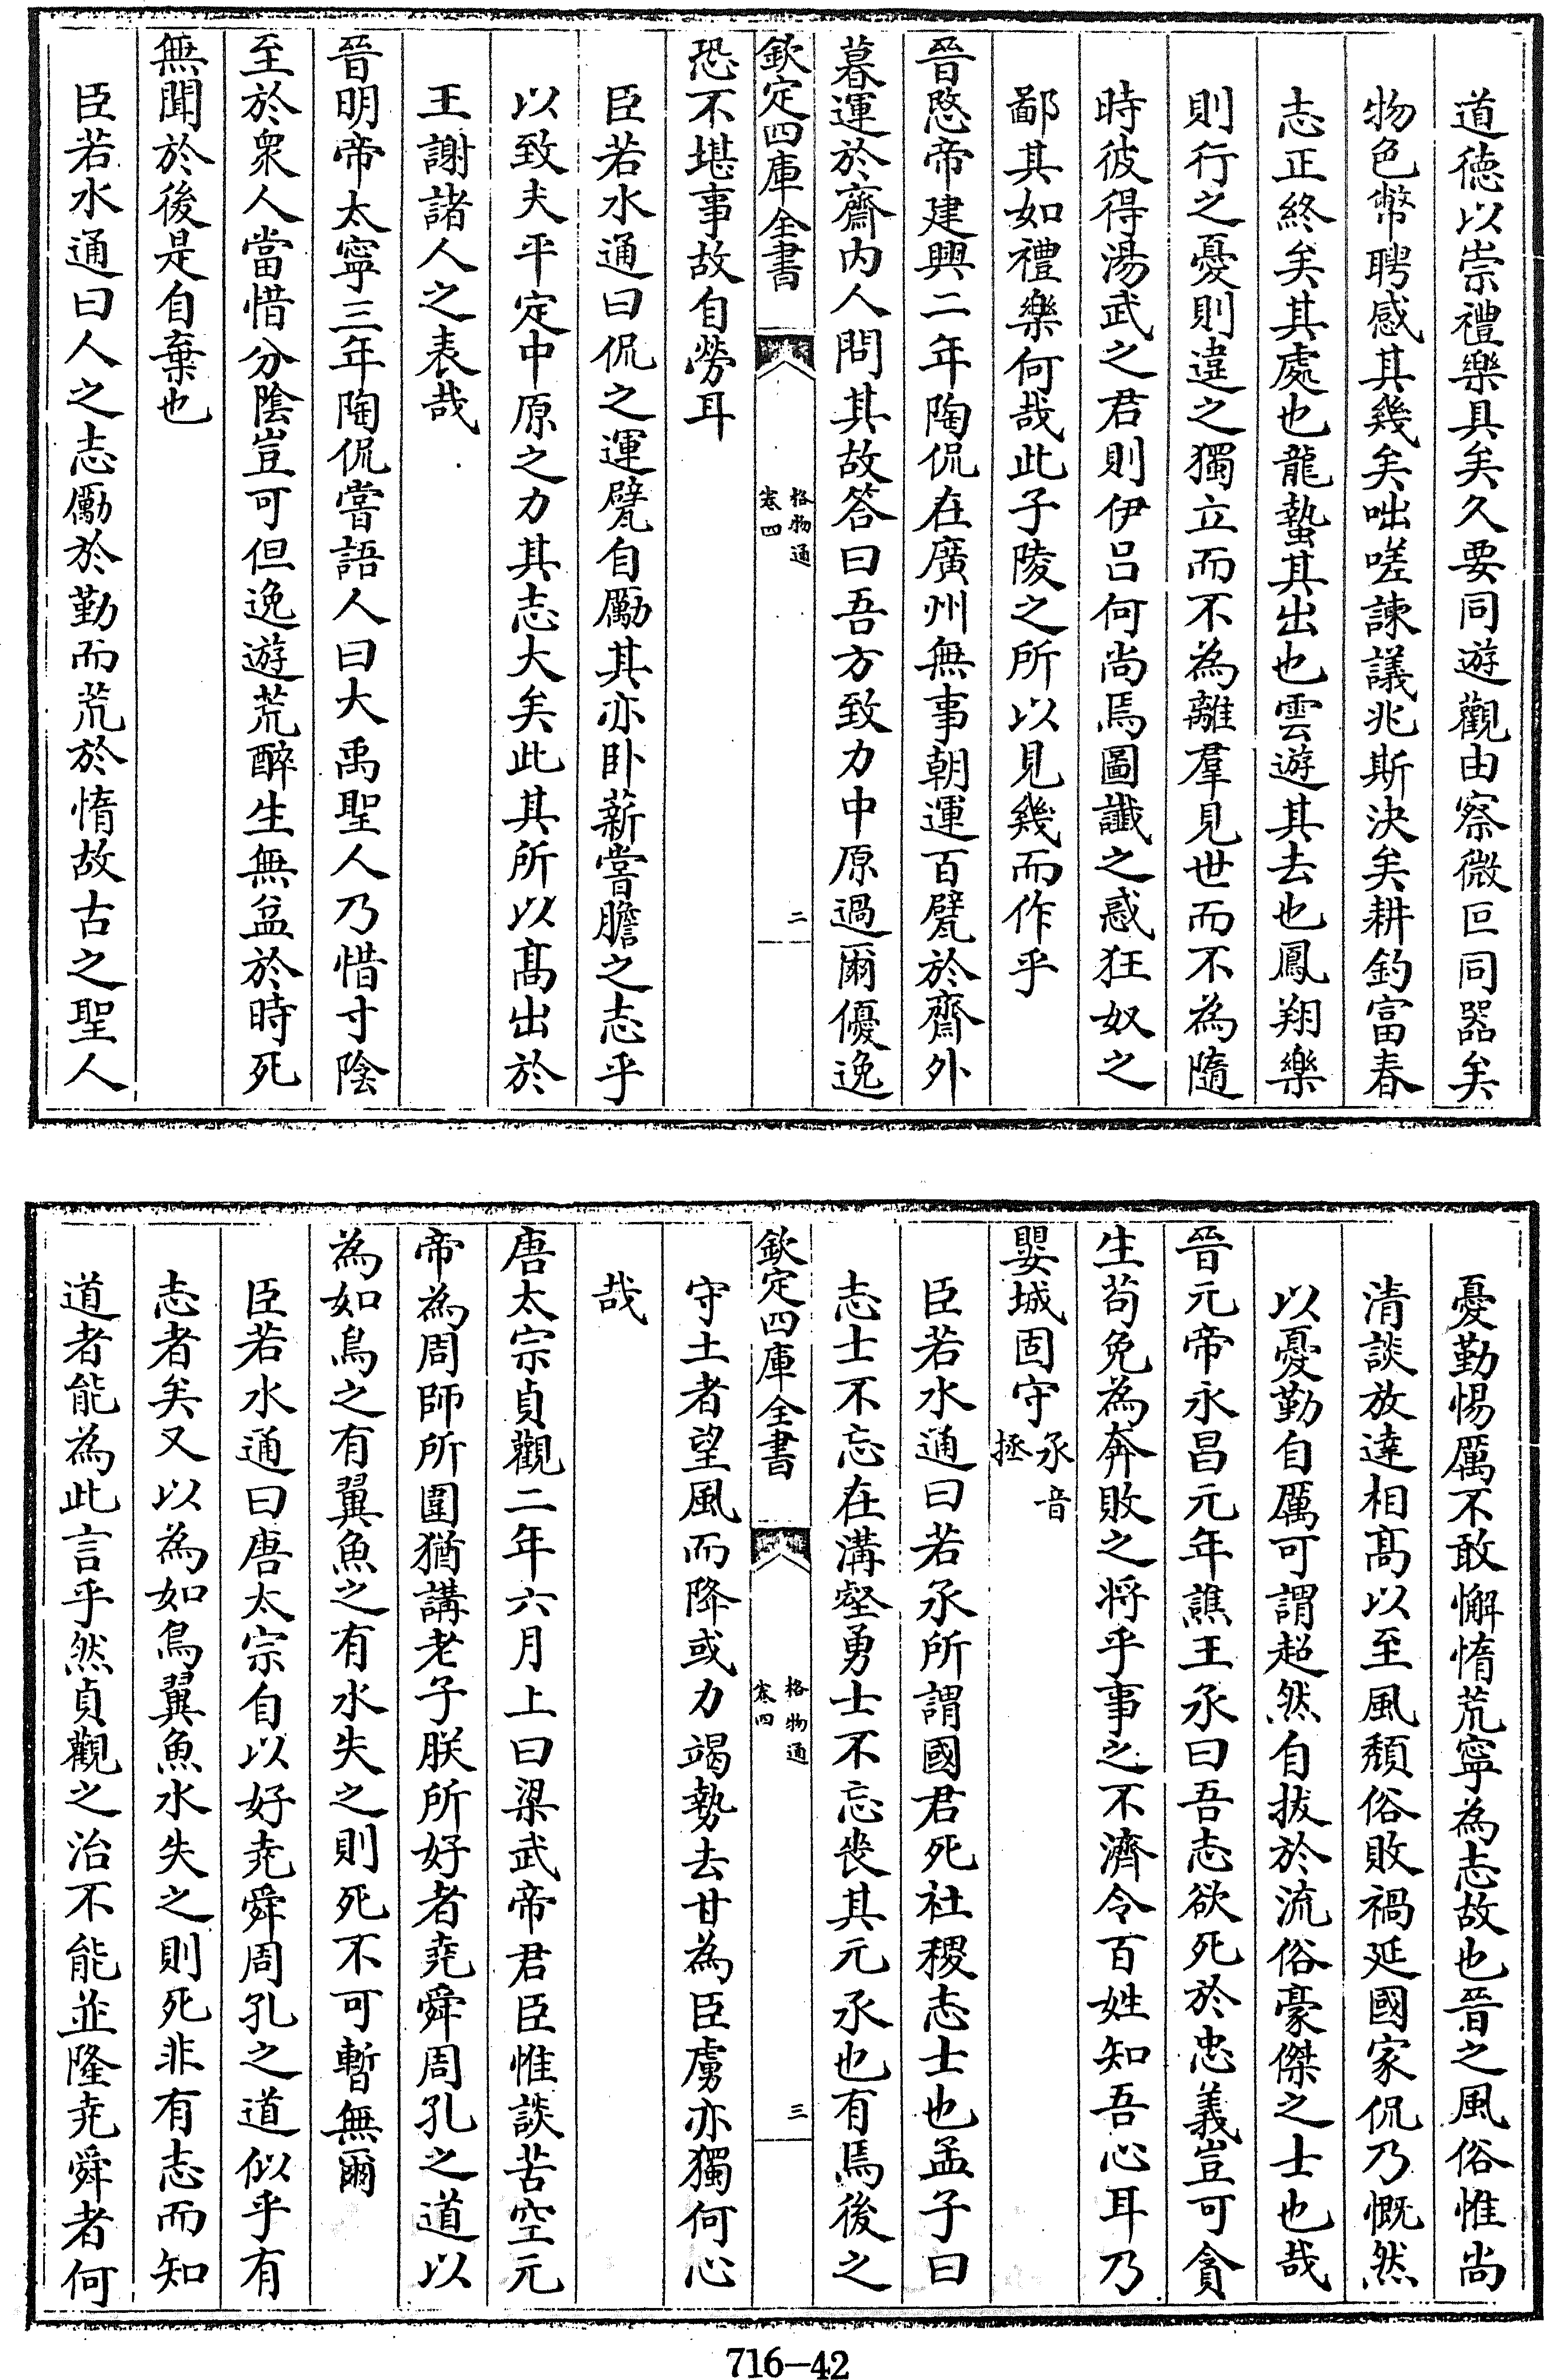 道德以崇禮樂具矣久要同遊觀由察微叵同器矣
物色幣聘感其幾矣咄嗟諫議兆斯決矣耕釣富春
志正終矣其處也龍蟄其出也雲遊其去也鳳翔樂
則行之憂則違之獨立而不為離羣見世而不為隨
時彼得湯武之君則伊吕何尚焉圖讖之惑狂奴之
鄙其如禮樂何哉此子陵之所以見幾而作乎
晉愍帝建興二年陶侃在廣州無事朝運百甓於齋外
暮運於齋内人問其故答曰吾方致力中原過爾優逸
欽定四庫全書
格物通
卷四
二
恐不堪事故自勞耳
臣若水通曰侃之運甓自勵其亦卧薪嘗膽之志乎
以致夫平定中原之力其志大矣此其所以髙出於
王謝諸人之表哉
晉明帝太寧三年陶侃嘗語人曰大禹聖人乃惜寸陰
至於衆人當惜分陰豈可但逸遊荒醉生無益於時死
無聞於後是自棄也
臣若水通曰人之志勵於勤而荒於惰故古之聖人
憂勤惕厲不敢懈惰荒寧為志故也晉之風俗惟尚
清談放達相髙以至風頽俗敗禍延國家侃乃慨然
以憂勤自厲可謂超然自拔於流俗豪傑之士也哉
晉元帝永昌元年譙王氶曰吾志欲死於忠義豈可貪
生苟免為奔敗之将乎事之不濟令百姓知吾心耳乃
嬰城固守氶音拯
臣若水通曰若氶所謂國君死社稷志士也孟子曰
志士不忘在溝壑勇士不忘喪其元氶也有焉後之
欽定四庫全書
格物通
卷四
三
守土者望風而降或力竭勢去甘為臣虜亦獨何心
哉
唐太宗貞觀二年六月上曰梁武帝君臣惟談苦空元
帝為周師所圍猶講老子朕所好者堯舜周孔之道以
為如鳥之有翼魚之有水失之則死不可暫無爾
臣若水通曰唐太宗自以好堯舜周孔之道似乎有
志者矣又以為如鳥翼魚水失之則死非有志而知
道者能為此言乎然貞觀之治不能並隆堯舜者何
716-42